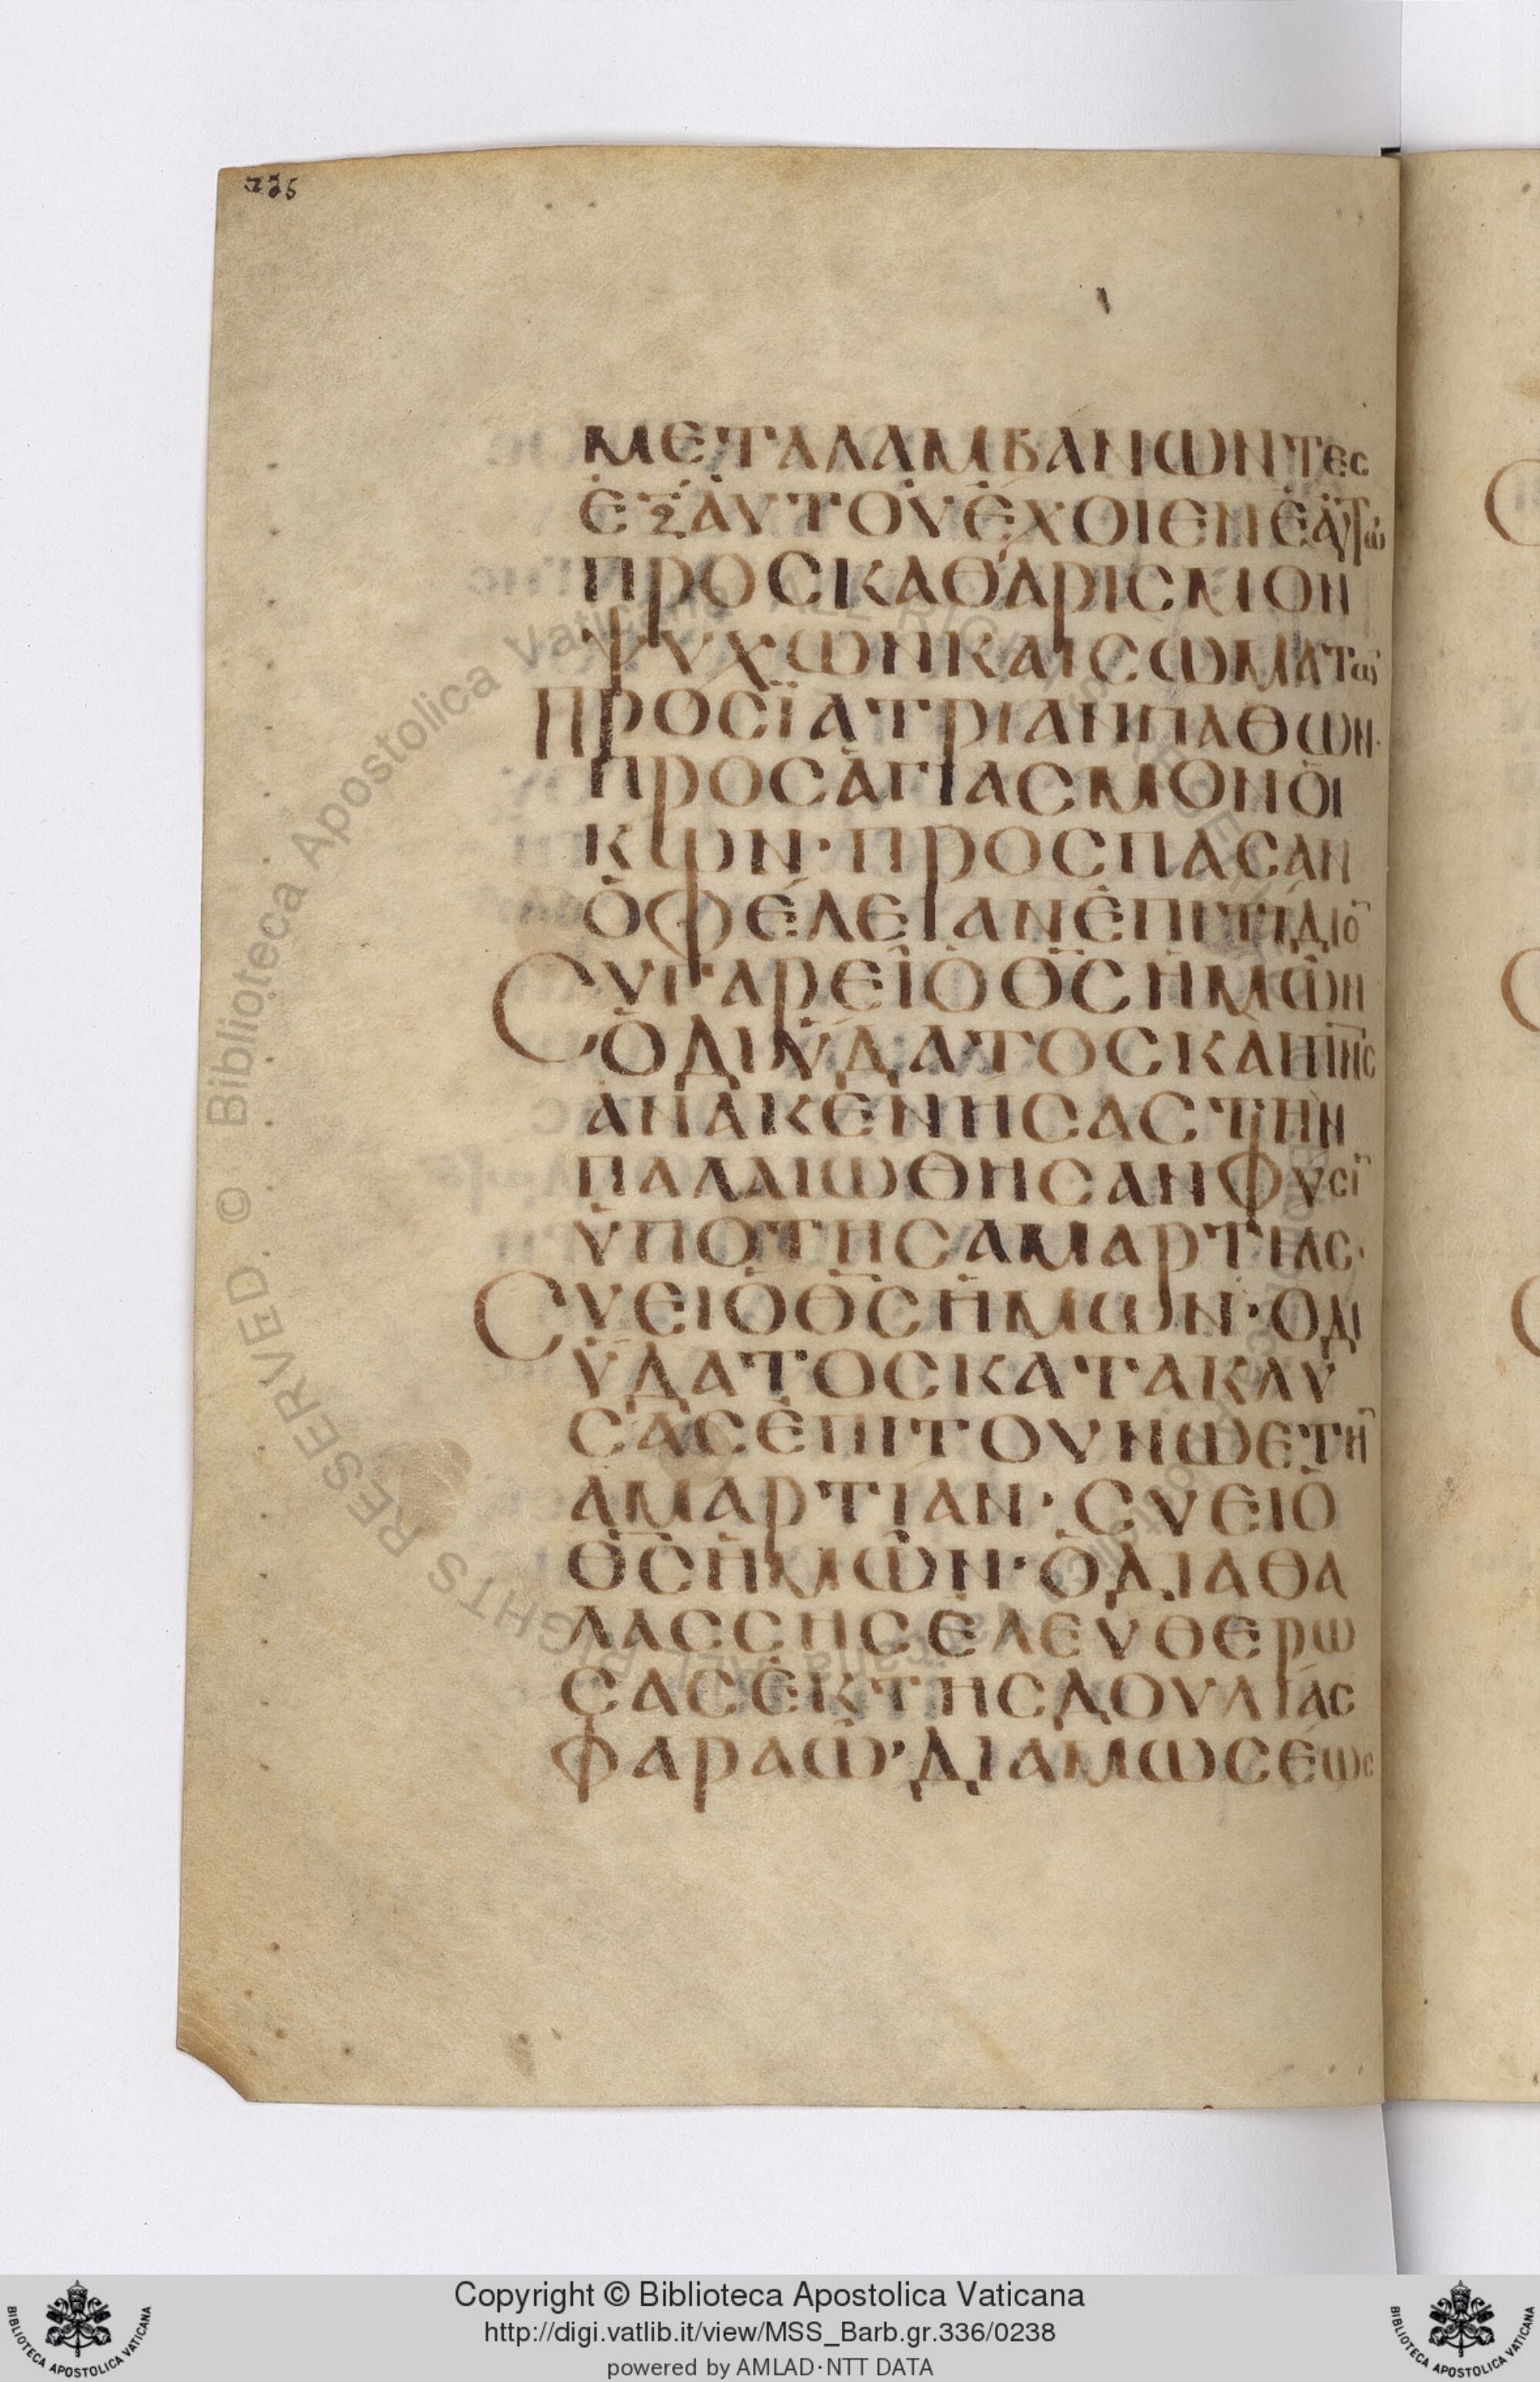 225
ΜΕΤΑΛΑΜΒΑΝΩΝΤΕς
ΕΞΑΥΤΟΥΕΧΟΙΕΝΕΑΥΤῶ
ΠΡΟΣΚΑΘΑΡΙΣΜΟΝ
ΨΥΧΩΝΚΑΙΣΩΜΑΤω̅
ΠΡΟΣΪΑΤΡΙΑΝΠΑΘΩΝ·
ΠΡΟΣΑΓΙΑΣΜΟΝΟΙ
ΚΩΝ·ΠΡΟΣΠΑΣΑΝ
ΟΦΕΛΕΙΑΝΕΠΙΤΙΔΙΟ̅
ΣΥΓΑΡΕΙΟΘ̅Σ̅ΗΜΩΝ
ΟΔΙΫΔΑΤΟΣΚΑΙΠ̅Ν̅Σ̅
ΑΝΑΚΕΝΗΣΑΣΤΗΝ
ΠΑΛΑΙΩΘΗΣΑΝΦΥΣΙ̅
ΥΠΟΤΗΣΑΜΑΡΤΙΑΣ·
ΣΥΕΙΟΘ̅Σ̅ΗΜΩΝ·ΟΔΙ
ΫΔΑΤΟΣΚΑΤΑΚΛΥ
ΣΑΣΕΠΙΤΟΥΝΩΕΤΗ̅
ΑΜΑΡΤΙΑΝ·ΣΥΕΙΟ
Θ̅Σ̅ΗΜΩΝ·ΟΔΙΑΘΑ
ΛΑΣΣΗΣΕΛΕΥΘΕΡΩ
ΣΑΣΕΚΤΗΣΔΟΥΛΙΑΣ
ΦΑΡΑΩ·ΔΙΑΜΩΣΕΩΣ
Copyright © Biblioteca Apostolica Vaticana
http://digi.vatlib.it/view/MSS_Barb.gr.336/0238
powered by AMLAD·NTT DATA
BIBLIOTECA APOSTOLICA VATICANA
BIBLIOTECA APOSTOLICA VATICANA